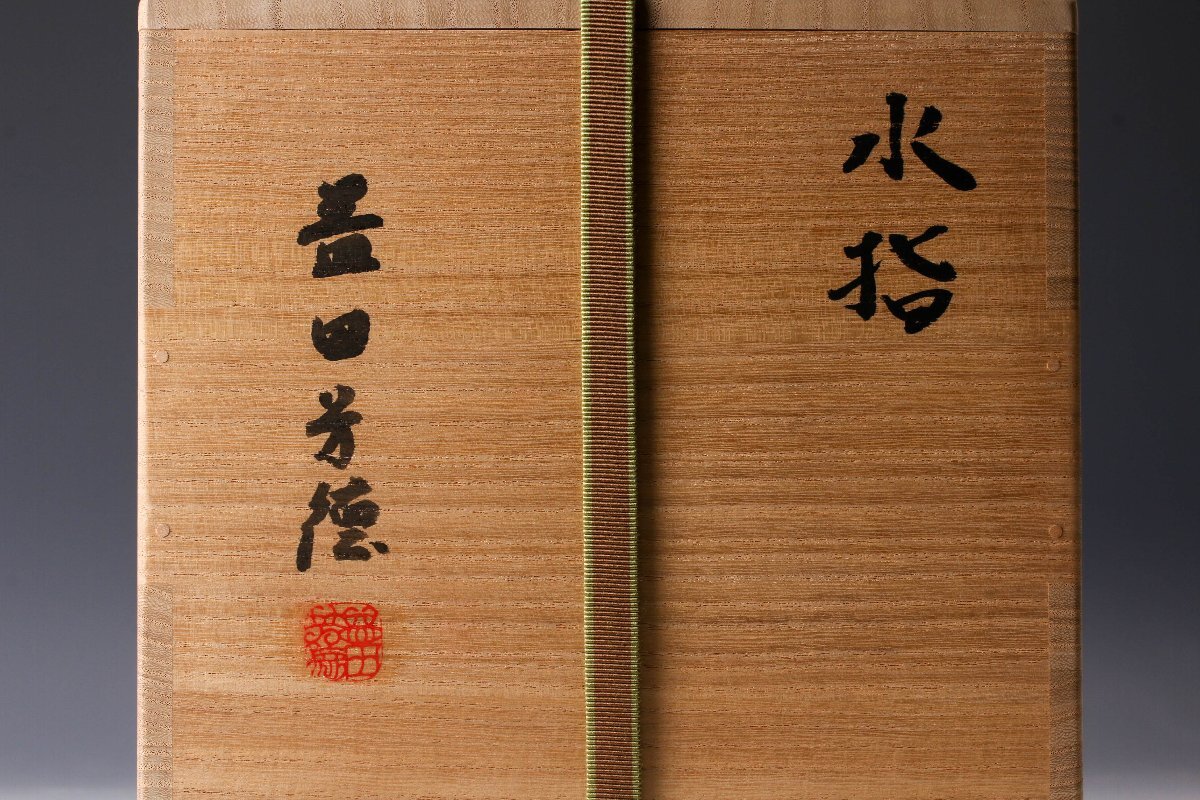 水指
益田芳徳